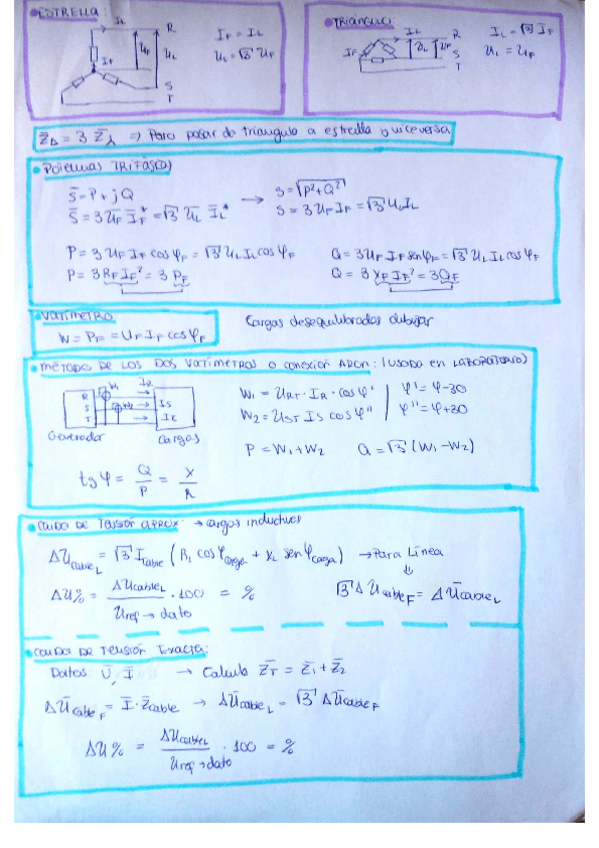 ESTRELLA:
IL R
IF = IL
UF UL
UL = √3 UF
IF
S
T
TRIÁNGULO:
IL R
IL = √3 IF
IF UL UF
S
UL = UF
T
Z̄Δ = 3 Z̄⅄ => Para pasar de triangulo a estrella o viceversa
Potencias TRIFÁSICAS
S̄ = P + jQ → S = √(P² + Q²)
S̄ = 3 ŪF ĪF* = √3 ŪL ĪL*
S = 3 UF IF = √3 UL IL
P = 3 UF IF cos φF = √3 UL IL cos φF
Q = 3 UF IF sen φF = √3 UL IL cos φF
P = 3 RF IF² = 3 PF
Q = 3 XF IF² = 3 QF
VATÍMETRO:
W = PF = UF IF cos φF
Cargas desequilibradas dibujar
MÉTODO DE LOS DOS VATÍMETROS o conexión ARON: (USADO EN LABORATORIO)
W1 IR
R
S W2 IS
T IT
Generador Cargas
W1 = URT · IR · cos φ' | φ' = φ-30
W2 = UST IS cos φ'' | φ'' = φ+30
P = W1 + W2 Q = √3 (W1 - W2)
tg φ = Q/P = X/R
CAIDA DE TENSIÓN APROX: → cargas inductivas
ΔUcableL = √3 Icable (RL cos φcarga + XL sen φcarga) → Para Línea
⇓
ΔU% = ΔUcableL / Uref → dato · 100 = %
√3 ΔUcableF = ΔŪcableL
CAIDA DE TENSIÓN Exacta:
Datos Ū, Ī → Calculo Z̄T = Z̄1 + Z̄2
ΔŪcableF = Ī · Z̄cable → ΔŪcableL = √3 ΔŪcableF
ΔU% = ΔUcableL / Uref → dato · 100 = %